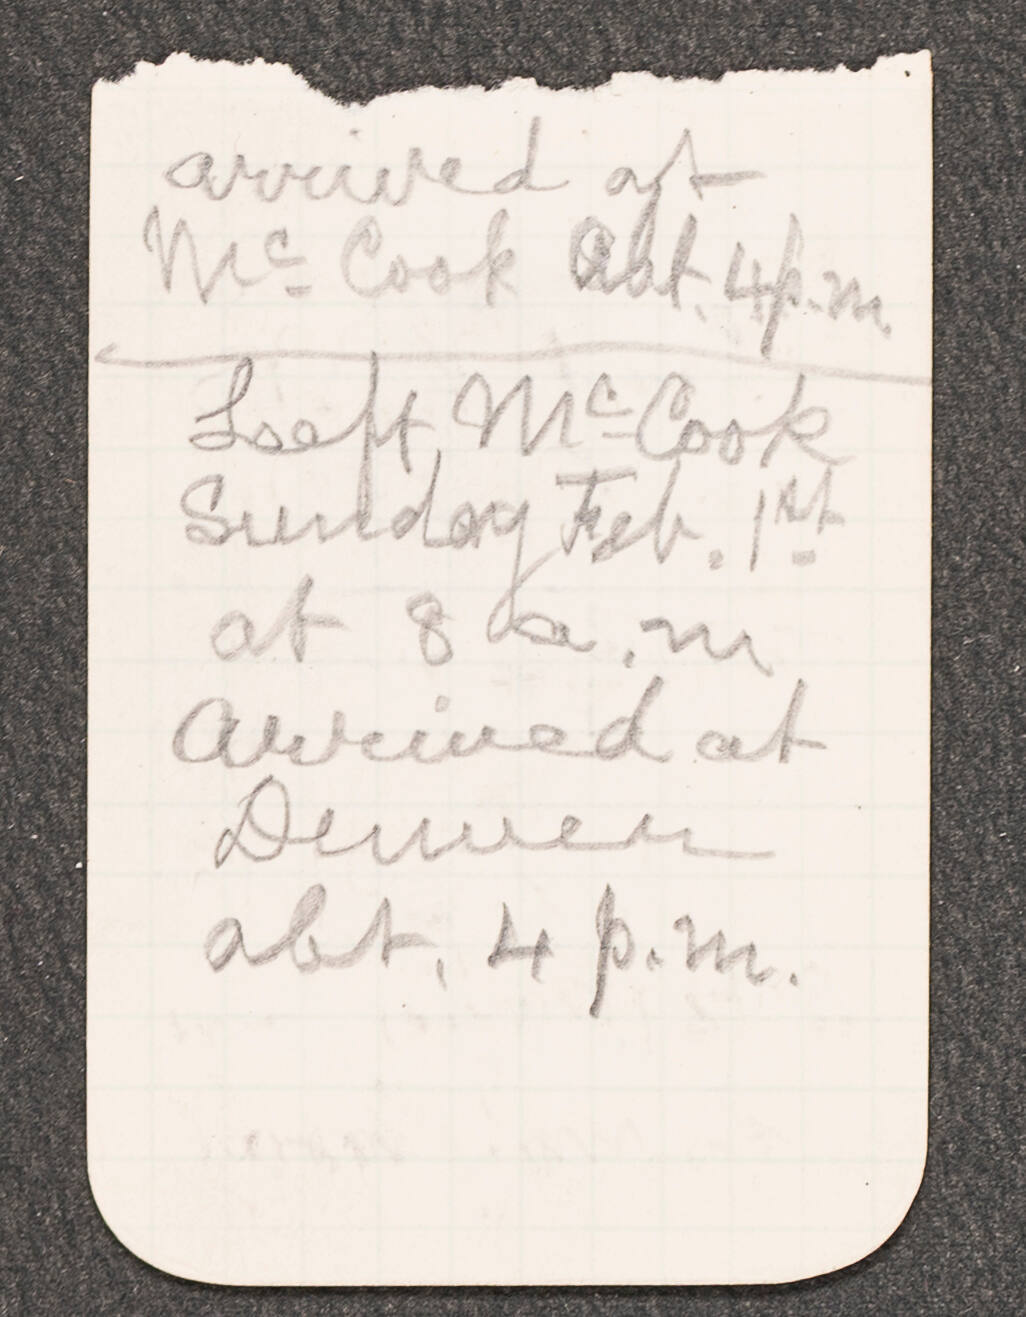 arrived at
Mc Cook Abt. 4 p.m.
Left Mc Cook
Sunday Feb. 1st
at 8 a.m
Arrived at
Denver
abt. 4 p.m.